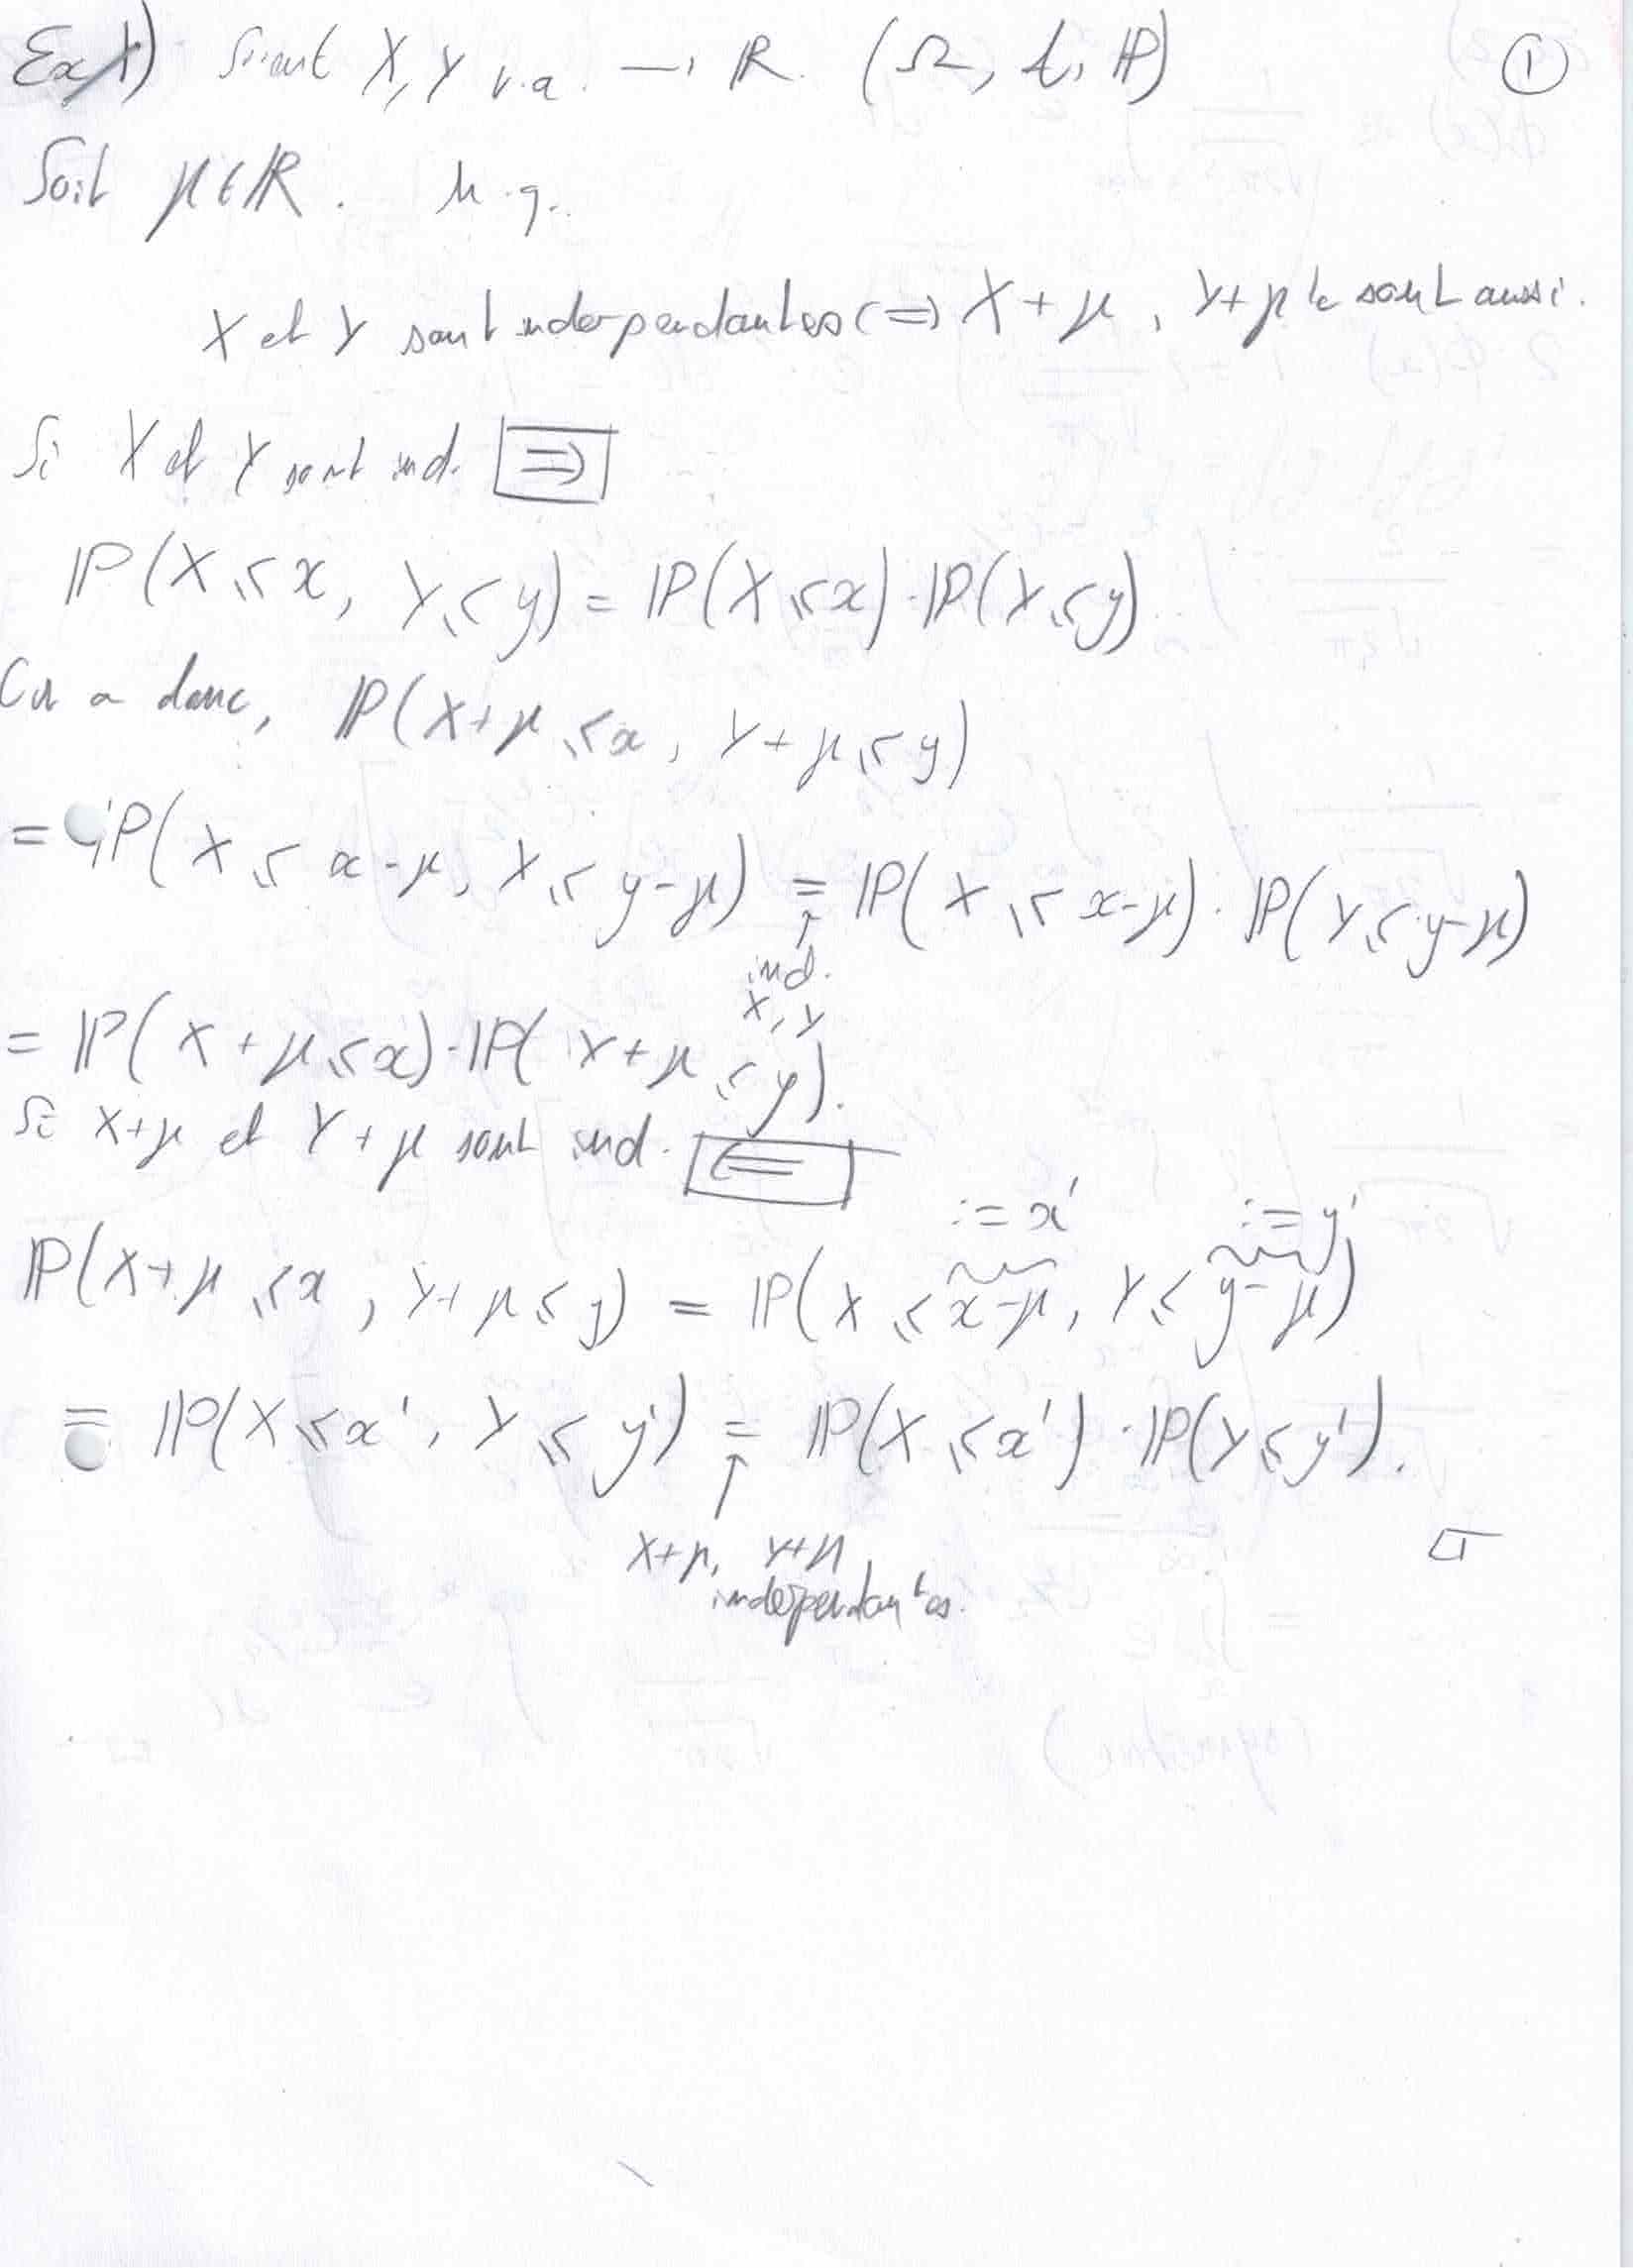 Ex 1) Soient X, Y v.a. → ℝ. (Ω, 𝒜, ℙ) ①
Soit μ ∈ ℝ. M.q.
X et Y sont indépendantes ⇔ X + μ, Y + μ le sont aussi.
Si X et Y sont ind. ⇒
ℙ(X ⩽ x, Y ⩽ y) = ℙ(X ⩽ x) · ℙ(Y ⩽ y)
On a donc, ℙ(X + μ ⩽ x, Y + μ ⩽ y)
= ℙ(X ⩽ x - μ, Y ⩽ y - μ) = ℙ(X ⩽ x - μ) · ℙ(Y ⩽ y - μ)
↑
ind.
X, Y
= ℙ(X + μ ⩽ x) · ℙ(Y + μ ⩽ y).
Si X + μ et Y + μ sont ind. ⇐
:= x' := y'
ℙ(X + μ ⩽ x, Y + μ ⩽ y) = ℙ(X ⩽ x - μ, Y ⩽ y - μ)
= ℙ(X ⩽ x', Y ⩽ y') = ℙ(X ⩽ x') · ℙ(Y ⩽ y').
↑
X + μ, Y + μ
indépendantes.
□